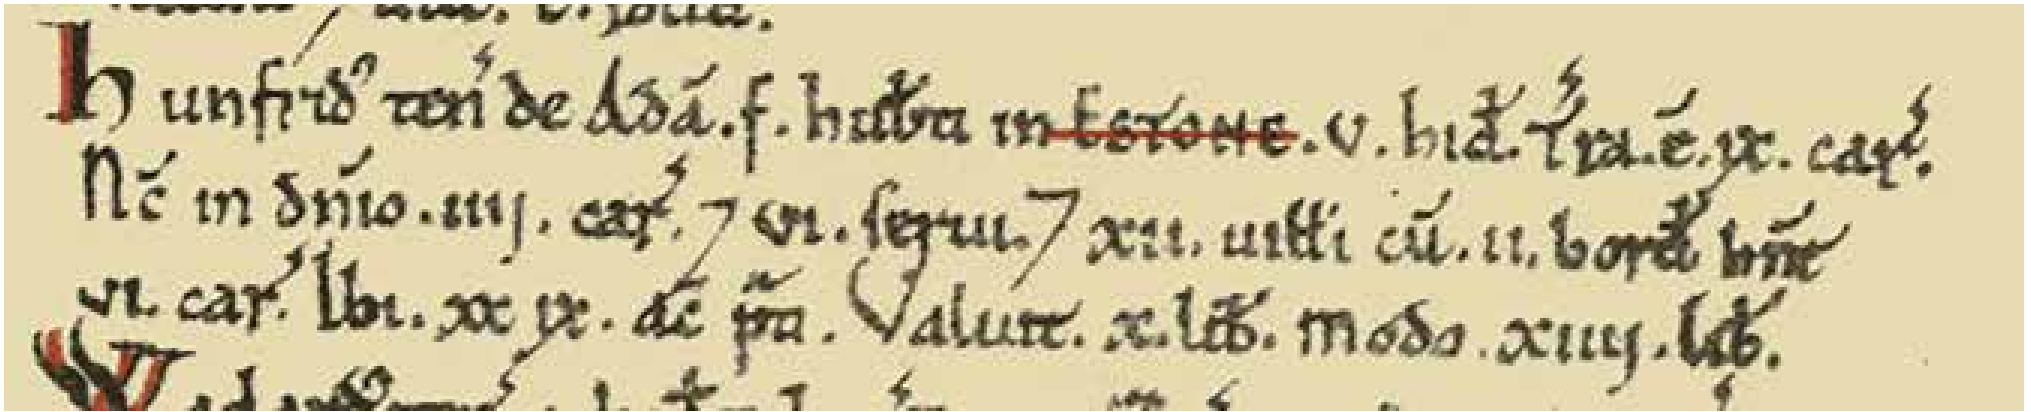 Hunfrid' teñ de Adā. f. huƀti in Estone. v. hiđ. Tra. ē. ix. car'.
Nc̄ in dñio. iiij. car'. ⁊ vi. serui. ⁊ xii. uilłi cū. ii. borđ hñt
vi. car'. Ibi. xxix. ac̄ p̃ti. Valuit. x. liƀ. Modo. xiiij. liƀ.